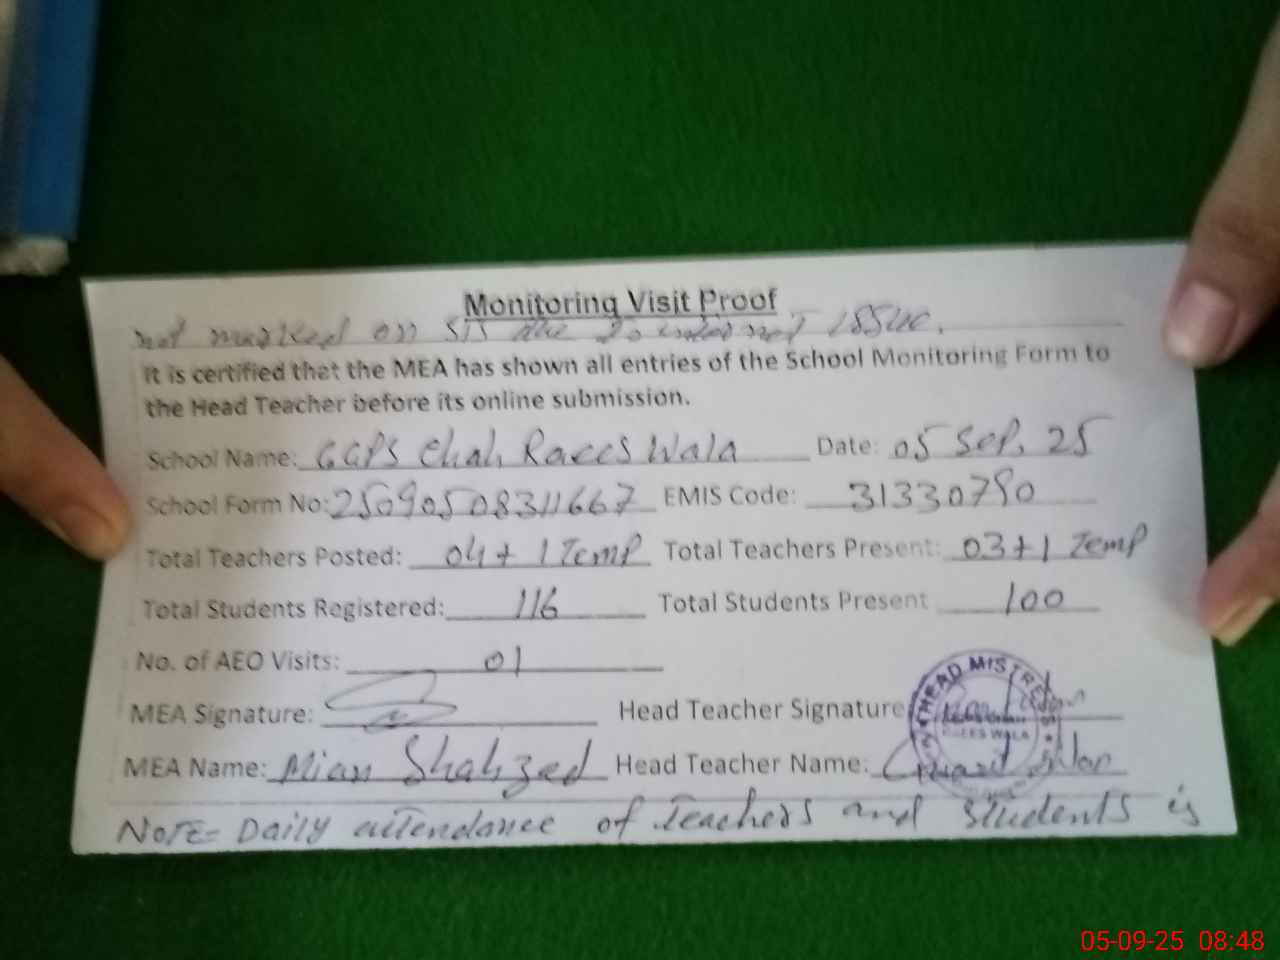 Monitoring Visit Proof
not marked on SIS due To internet issue.
It is certified that the MEA has shown all entries of the School Monitoring Form to
the Head Teacher before its online submission.
School Name: GGPS Chah Raees Wala Date: 05 Sep, 25
School Form No: 25090508311667 EMIS Code: 31330790
Total Teachers Posted: 04 + 1 Temp Total Teachers Present: 03 + 1 Temp
Total Students Registered: 116 Total Students Present 100
No. of AEO Visits: 01
MEA Signature: Head Teacher Signature
HEAD MISTRESS
RAEES WALA
MEA Name: Mian Shahzed Head Teacher Name:
NOTE= Daily attendance of Teachers and Students is
05-09-25 08:48